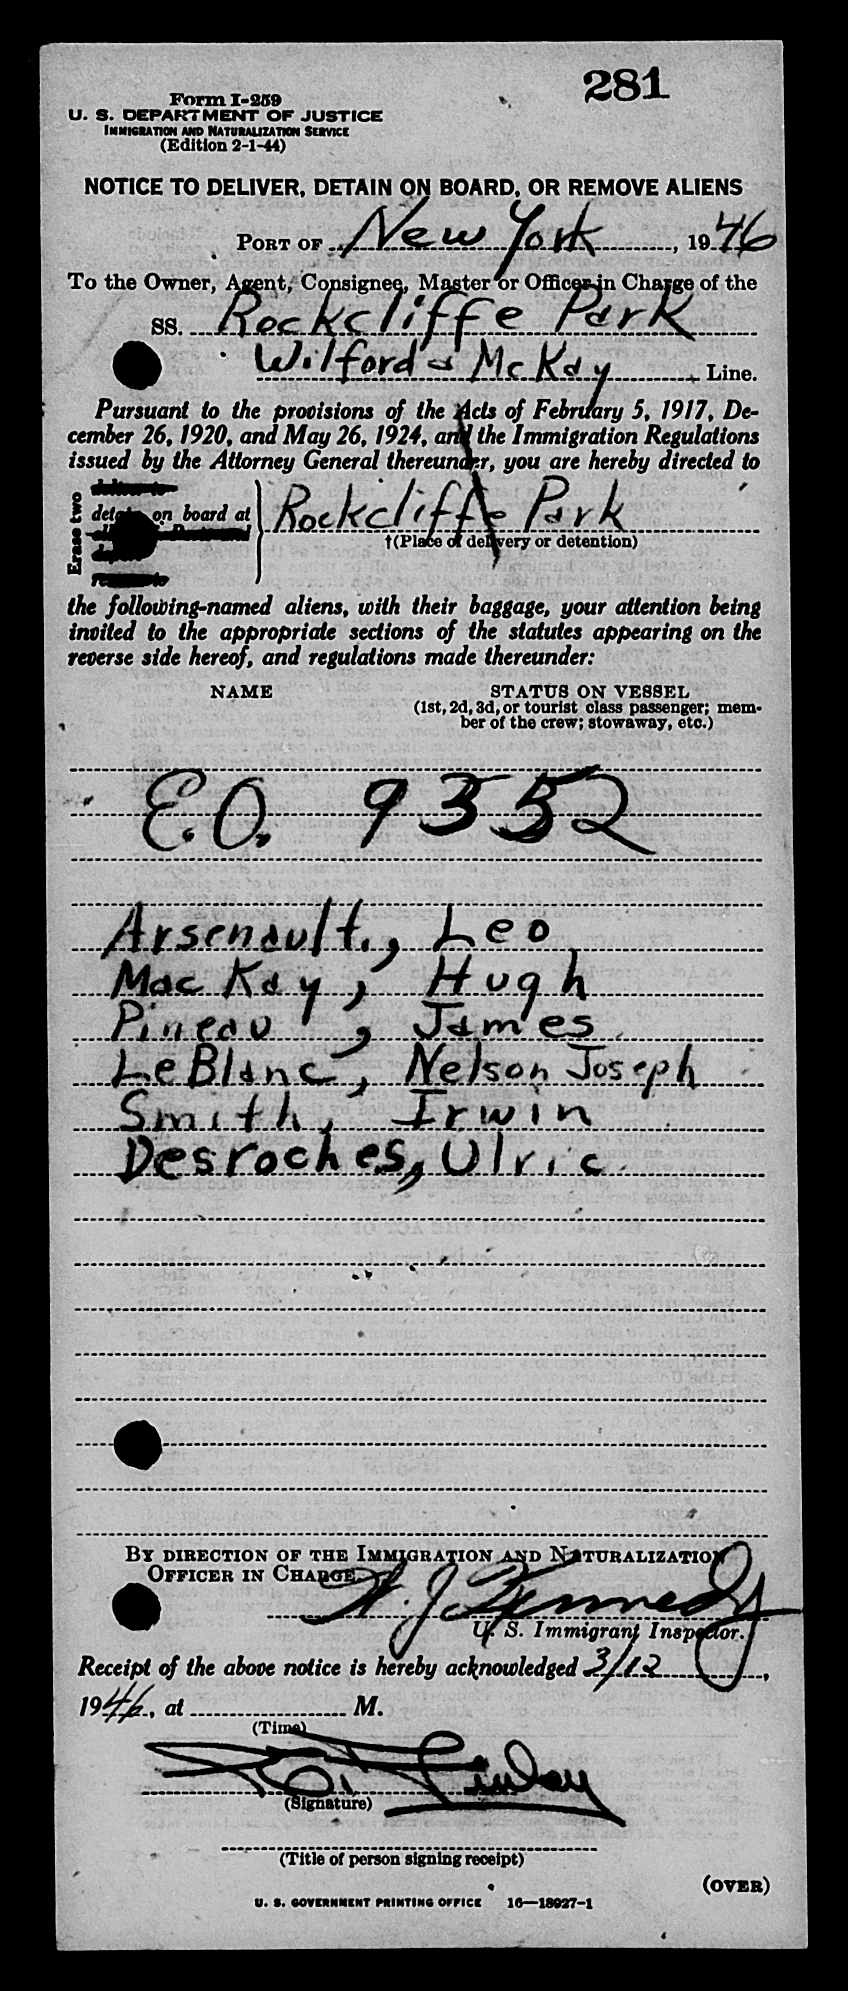 281
Form I-259
U. S. DEPARTMENT OF JUSTICE
IMMIGRATION AND NATURALIZATION SERVICE
(Edition 2-1-44)
NOTICE TO DELIVER, DETAIN ON BOARD, OR REMOVE ALIENS
PORT OF New York, 1946
To the Owner, Agent, Consignee, Master or Officer in Charge of the
SS. Rockcliffe Park
Wilford & McKay Line.
Pursuant to the provisions of the Acts of February 5, 1917, De-
cember 26, 1920, and May 26, 1924, and the Immigration Regulations
issued by the Attorney General thereunder, you are hereby directed to
Erase two
detain on board at Rockcliffe Park
†(Place of delivery or detention)
the following-named aliens, with their baggage, your attention being
invited to the appropriate sections of the statutes appearing on the
reverse side hereof, and regulations made thereunder:
NAME STATUS ON VESSEL
(1st, 2d, 3d, or tourist class passenger; mem-
ber of the crew; stowaway, etc.)
E.O. 9352
Arsenault, Leo
MacKay, Hugh
Pineau, James
LeBlanc, Nelson Joseph
Smith, Irwin
Desroches, Ulric
BY DIRECTION OF THE IMMIGRATION AND NATURALIZATION
OFFICER IN CHARGE
J. Kennedy
U. S. Immigrant Inspector.
Receipt of the above notice is hereby acknowledged 3/12,
1946, at M.
(Time)
(Signature)
(Title of person signing receipt)
(OVER)
U. S. GOVERNMENT PRINTING OFFICE 16—18027-1